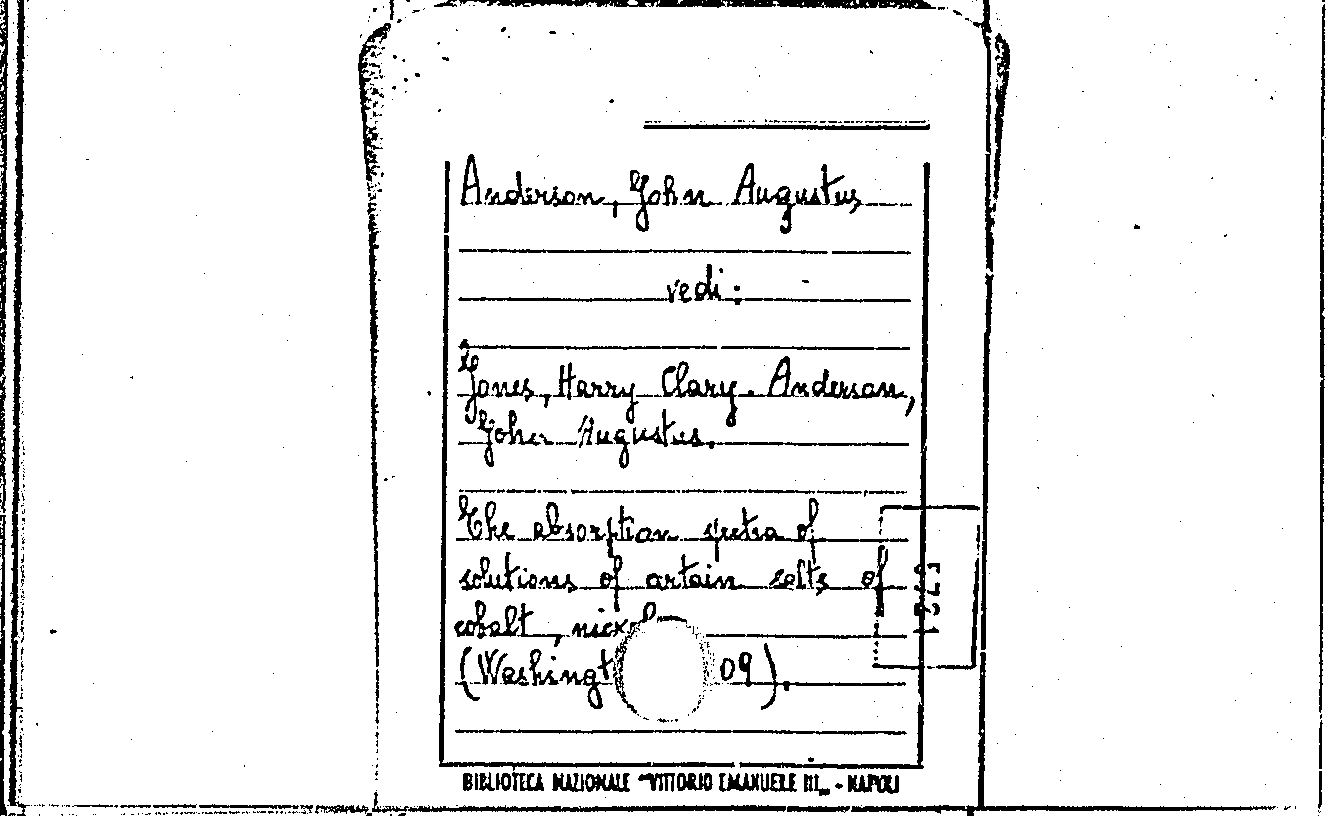 Anderson, John Augustus
vedi:
Jones, Harry Clary. Anderson,
John Augustus.
The absorption spetra of
solutions of certain salts of
cobalt, nickel
(Washingt 09).
BIBLIOTECA NAZIONALE "VITTORIO EMANUELE III" - NAPOLI